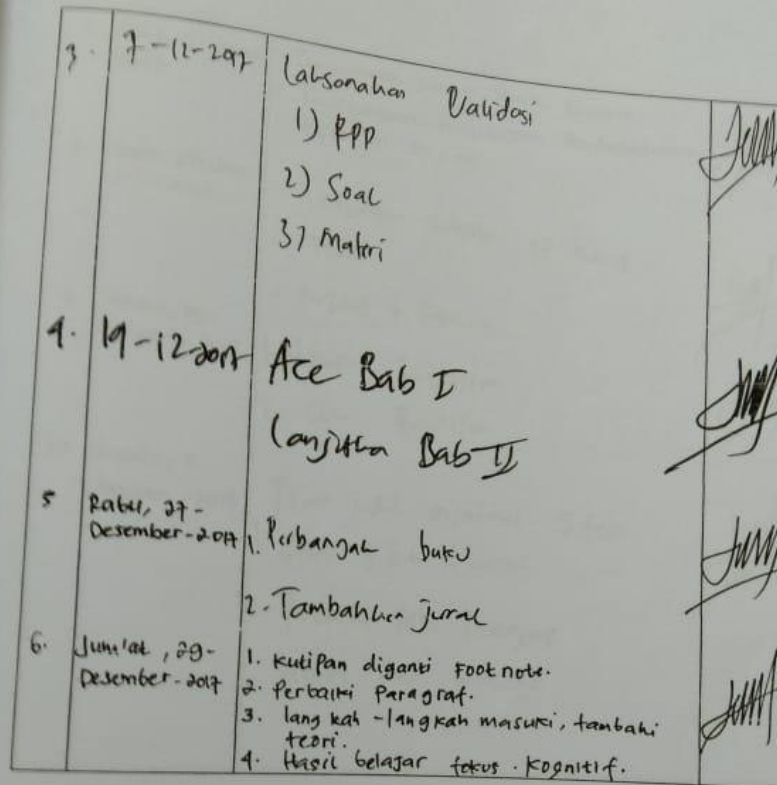 3. 7-12-2017 Laksanakan Validasi
1) RPP
2) Soal
3) Materi
4. 19-12-2017 Acc Bab I
Lanjutkan Bab II
5 Rabu, 27-
Desember-2017 1. Perbanyak buku
2. Tambahkan jurnal
6. Jum'at, 29-
Desember-2017
1. Kutipan diganti Footnote.
2. Perbaiki Paragraf.
3. langkah-langkah masuki, tambahi
teori.
4. Hasil belajar fokus. Kognitif.